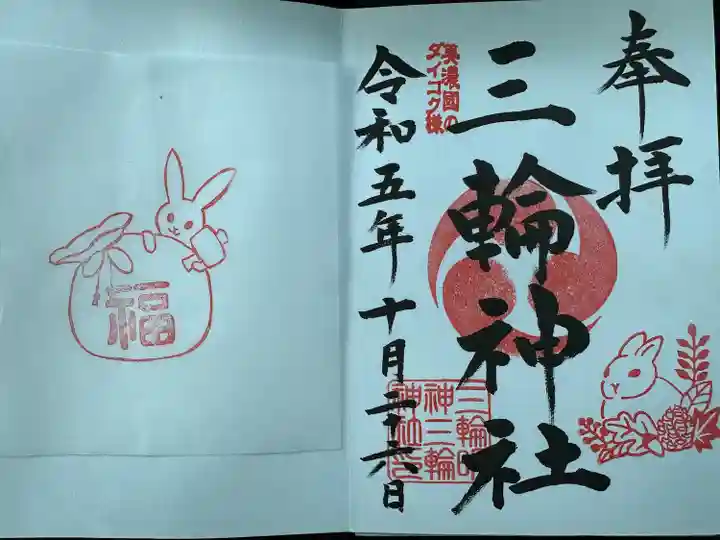 奉拝
三輪神社
美濃國の
ダイコク様
令和五年十月二十六日
福